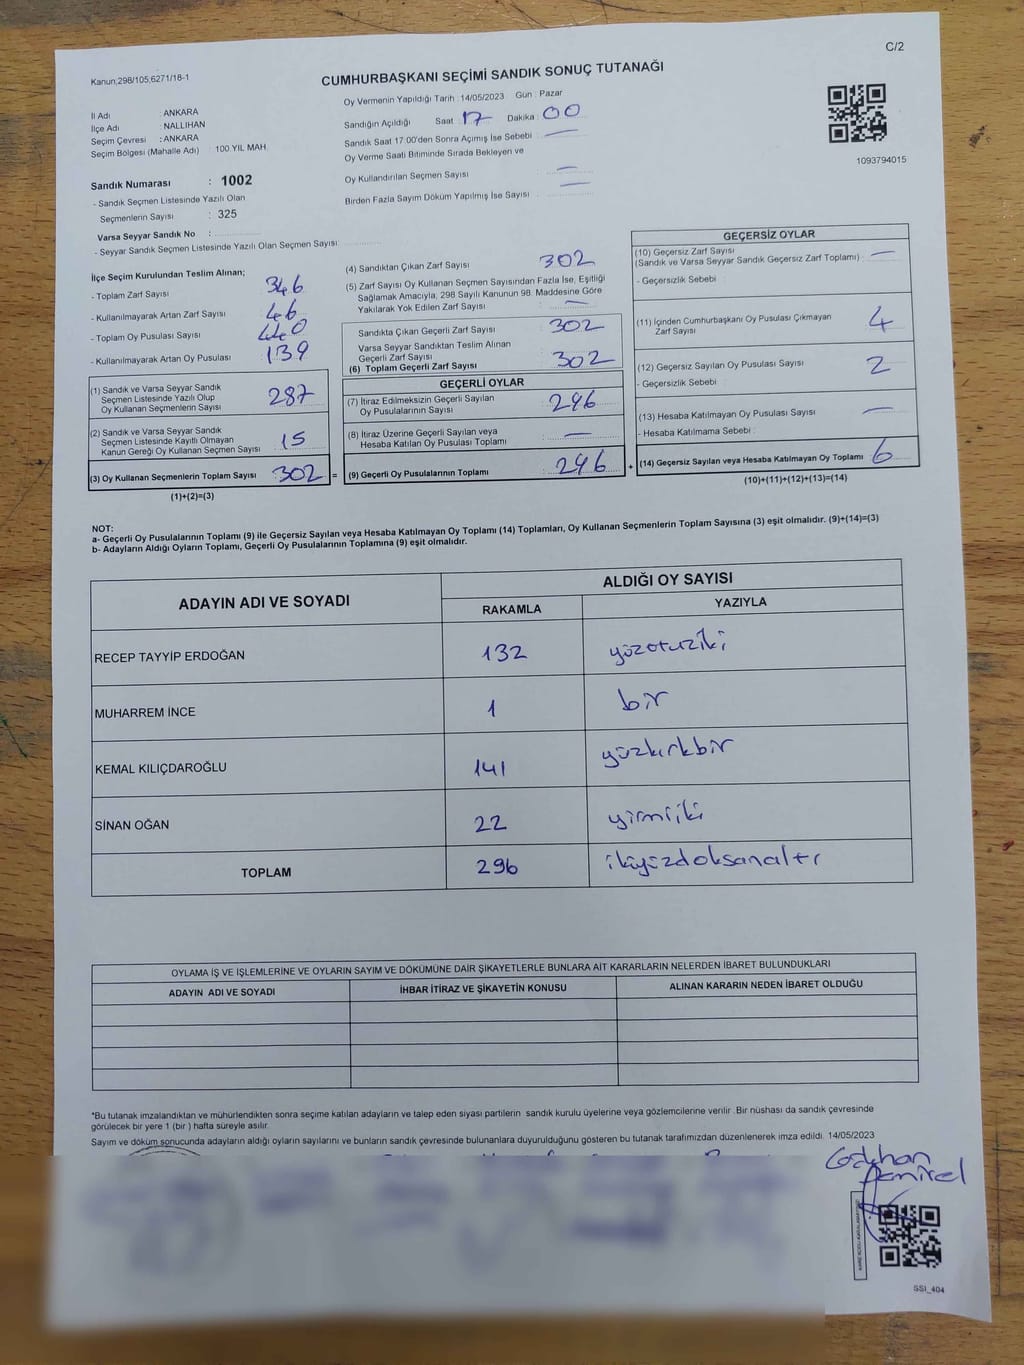 C/2
Kanun;298/105;6271/18-1
CUMHURBAŞKANI SEÇİMİ SANDIK SONUÇ TUTANAĞI
İl Adı : ANKARA
İlçe Adı : NALLIHAN
Seçim Çevresi : ANKARA
Seçim Bölgesi (Mahalle Adı) 100 YIL MAH
Sandık Numarası : 1002
- Sandık Seçmen Listesinde Yazılı Olan
Seçmenlerin Sayısı : 325
Varsa Seyyar Sandık No :
- Seyyar Sandık Seçmen Listesinde Yazılı Olan Seçmen Sayısı:
Oy Vermenin Yapıldığı Tarih : 14/05/2023 Gün : Pazar
Sandığın Açıldığı Saat : 17 Dakika : 00
Sandık Saat 17:00'den Sonra Açımış İse Sebebi : —
Oy Verme Saati Bitiminde Sırada Bekleyen ve
Oy Kullandırılan Seçmen Sayısı —
Birden Fazla Sayım Döküm Yapılmış İse Sayısı : —
1093794015
İlçe Seçim Kurulundan Teslim Alınan;
- Toplam Zarf Sayısı 346
- Kullanılmayarak Artan Zarf Sayısı 46
- Toplam Oy Pusulası Sayısı 440
- Kullanılmayarak Artan Oy Pusulası 139
(1) Sandık ve Varsa Seyyar Sandık
Seçmen Listesinde Yazılı Olup
Oy Kullanan Seçmenlerin Sayısı 287
(2) Sandık ve Varsa Seyyar Sandık
Seçmen Listesinde Kayıtlı Olmayan
Kanun Gereği Oy Kullanan Seçmen Sayısı 15
(3) Oy Kullanan Seçmenlerin Toplam Sayısı 302 =
(1)+(2)=(3)
(4) Sandıktan Çıkan Zarf Sayısı 302
(5) Zarf Sayısı Oy Kullanan Seçmen Sayısından Fazla İse, Eşitliği
Sağlamak Amacıyla, 298 Sayılı Kanunun 98. Maddesine Göre
Yakılarak Yok Edilen Zarf Sayısı : —
Sandıkta Çıkan Geçerli Zarf Sayısı 302
Varsa Seyyar Sandıktan Teslim Alınan
Geçerli Zarf Sayısı
(6) Toplam Geçerli Zarf Sayısı 302
GEÇERLİ OYLAR
(7) İtiraz Edilmeksizin Geçerli Sayılan
Oy Pusulalarının Sayısı : 296
(8) İtiraz Üzerine Geçerli Sayılan veya
Hesaba Katılan Oy Pusulası Toplamı : —
(9) Geçerli Oy Pusulalarının Toplamı : 296 +
GEÇERSİZ OYLAR
(10) Geçersiz Zarf Sayısı
(Sandık ve Varsa Seyyar Sandık Geçersiz Zarf Toplamı) : —
- Geçersizlik Sebebi :
(11) İçinden Cumhurbaşkanı Oy Pusulası Çıkmayan
Zarf Sayısı 4
(12) Geçersiz Sayılan Oy Pusulası Sayısı 2
- Geçersizlik Sebebi :
(13) Hesaba Katılmayan Oy Pusulası Sayısı —
- Hesaba Katılmama Sebebi :
(14) Geçersiz Sayılan veya Hesaba Katılmayan Oy Toplamı 6
(10)+(11)+(12)+(13)=(14)
NOT:
a- Geçerli Oy Pusulalarının Toplamı (9) ile Geçersiz Sayılan veya Hesaba Katılmayan Oy Toplamı (14) Toplamları, Oy Kullanan Seçmenlerin Toplam Sayısına (3) eşit olmalıdır. (9)+(14)=(3)
b- Adayların Aldığı Oyların Toplamı, Geçerli Oy Pusulalarının Toplamına (9) eşit olmalıdır.
ADAYIN ADI VE SOYADI ALDIĞI OY SAYISI
RAKAMLA YAZIYLA
RECEP TAYYİP ERDOĞAN 132 yüzotuziki
MUHARREM İNCE 1 bir
KEMAL KILIÇDAROĞLU 141 yüzkırkbir
SİNAN OĞAN 22 yirmiiki
TOPLAM 296 ikiyüzdoksanaltı
OYLAMA İŞ VE İŞLEMLERİNE VE OYLARIN SAYIM VE DÖKÜMÜNE DAİR ŞİKAYETLERLE BUNLARA AİT KARARLARIN NELERDEN İBARET BULUNDUKLARI
ADAYIN ADI VE SOYADI İHBAR İTİRAZ VE ŞİKAYETİN KONUSU ALINAN KARARIN NEDEN İBARET OLDUĞU
*Bu tutanak imzalandıktan ve mühürlendikten sonra seçime katılan adayların ve talep eden siyasi partilerin sandık kurulu üyelerine veya gözlemcilerine verilir .Bir nüshası da sandık çevresinde
görülecek bir yere 1 (bir ) hafta süreyle asılır.
Sayım ve döküm sonucunda adayların aldığı oyların sayılarını ve bunların sandık çevresinde bulunanlara duyurulduğunu gösteren bu tutanak tarafımızdan düzenlenerek imza edildi. 14/05/2023
Gökhan
Demirel
SSI_404